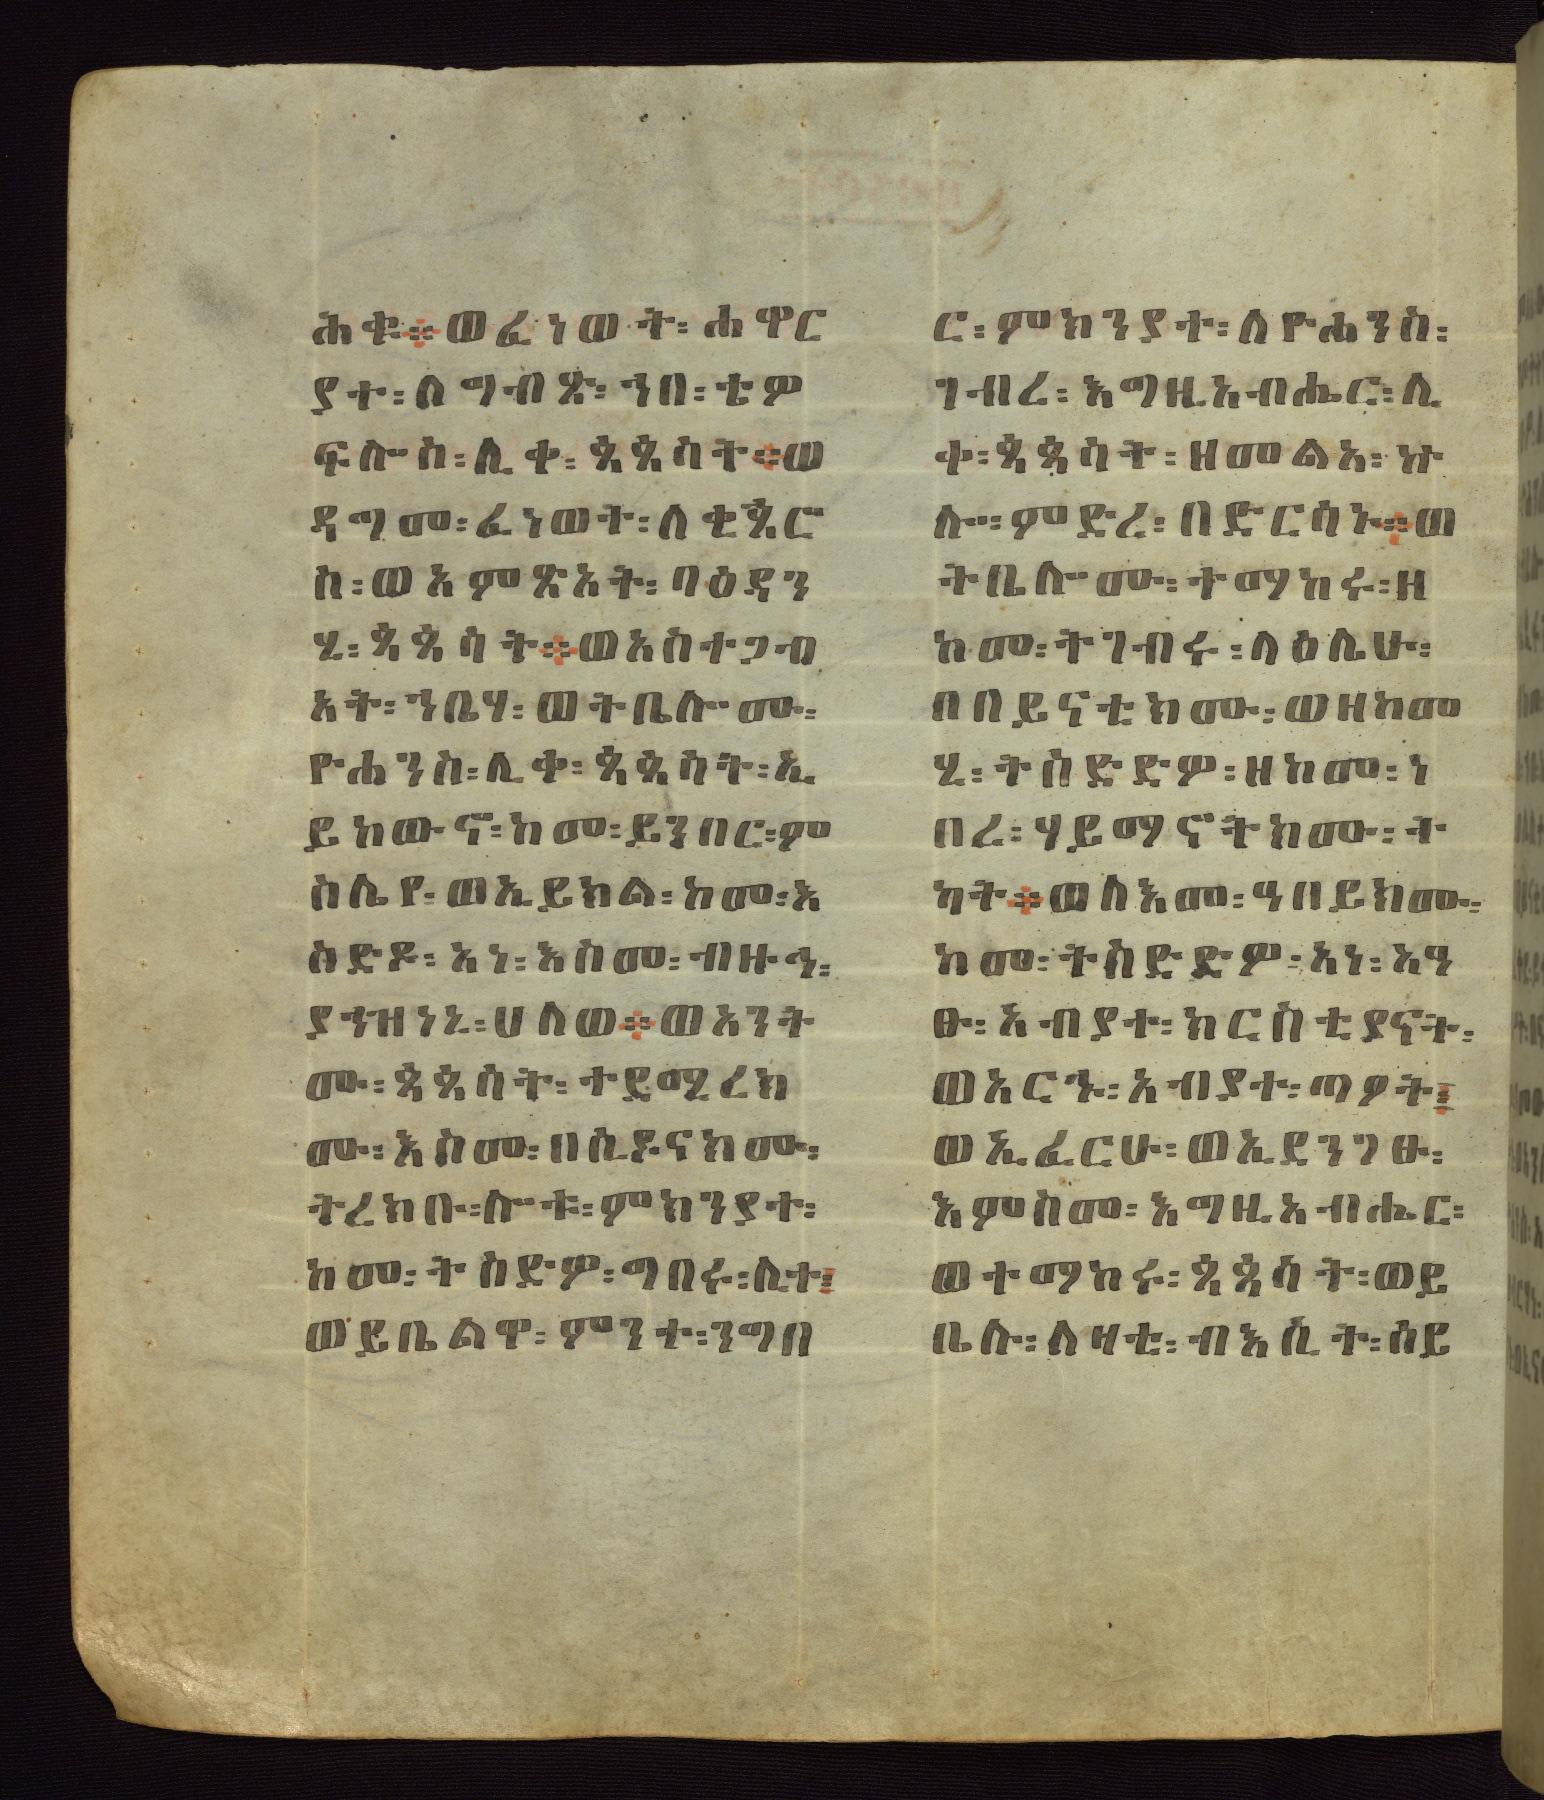 ሕቁ፨ወፈነወት፡ሐዋር
ያተ፡ለግብጽ፡ኀበ፡ቴዎ
ፍሎስ፡ሊቀ፡ጳጳሳት፨ወ
ዳግመ፡ፈነወት፡ለቂጳር
ስ፡ወአምጽአት፡ባዕዳን
ሂ፡ጳጳሳት፨ወአስተጋብ
አት፡ኀቤሃ፡ወትቤሎሙ፡
ዮሐንስ፡ሊቀ፡ጳጳሳት፡ኢ
ይከውኖ፡ከመ፡ይንበር፡ም
ስሌየ፡ወኢይክል፡ከመ፡እ
ስድዶ፡አነ፡እስመ፡ብዙኀ፡
ያኀዝነኒ፡ሀለወ፨ወአንት
ሙ፡ጳጳሳት፡ተደማሂረክ
ሙ፡እስመ፡በሲዶናክሙ፡
ትረክቡ፡ሎቱ፡ምክንያተ፡
ከመ፡ትስድዎ፡ግበሩ፡ሊተ፤
ወይቤልዋ፡ምንተ፡ንግበ
ር፡ምክንያተ፡ለዮሐንስ፡
ገብረ፡እግዚአብሔር፡ሊ
ቀ፡ጳጳሳት፡ዘመልአ፡ኵ
ሎ፡ምድረ፡በድርሳኑ፨ወ
ትቤሎሙ፡ተማከሩ፡ዘ
ከመ፡ትገብሩ፡ላዕሌሁ፡
በበይናቲክሙ፡ወዘከመ
ሂ፡ትስድድዎ፡ዘከመ፡ነ
በረ፡ሃይማኖትክሙ፡ት
ካት፨ወለእመ፡ዓበይክሙ፡
ከመ፡ትስድድዎ፡አነ፡አዓ
ፁ፡አብያተ፡ክርስቲያናት፡
ወአርኁ፡አብያተ፡ጣዖት፤
ወኢፈርሁ፡ወኢደንገፁ፡
እምስመ፡እግዚአብሔር፡
ወተማከሩ፡ጳጳሳት፡ወይ
ቤሉ፡ለዛቲ፡ብእሲት፡ስይ